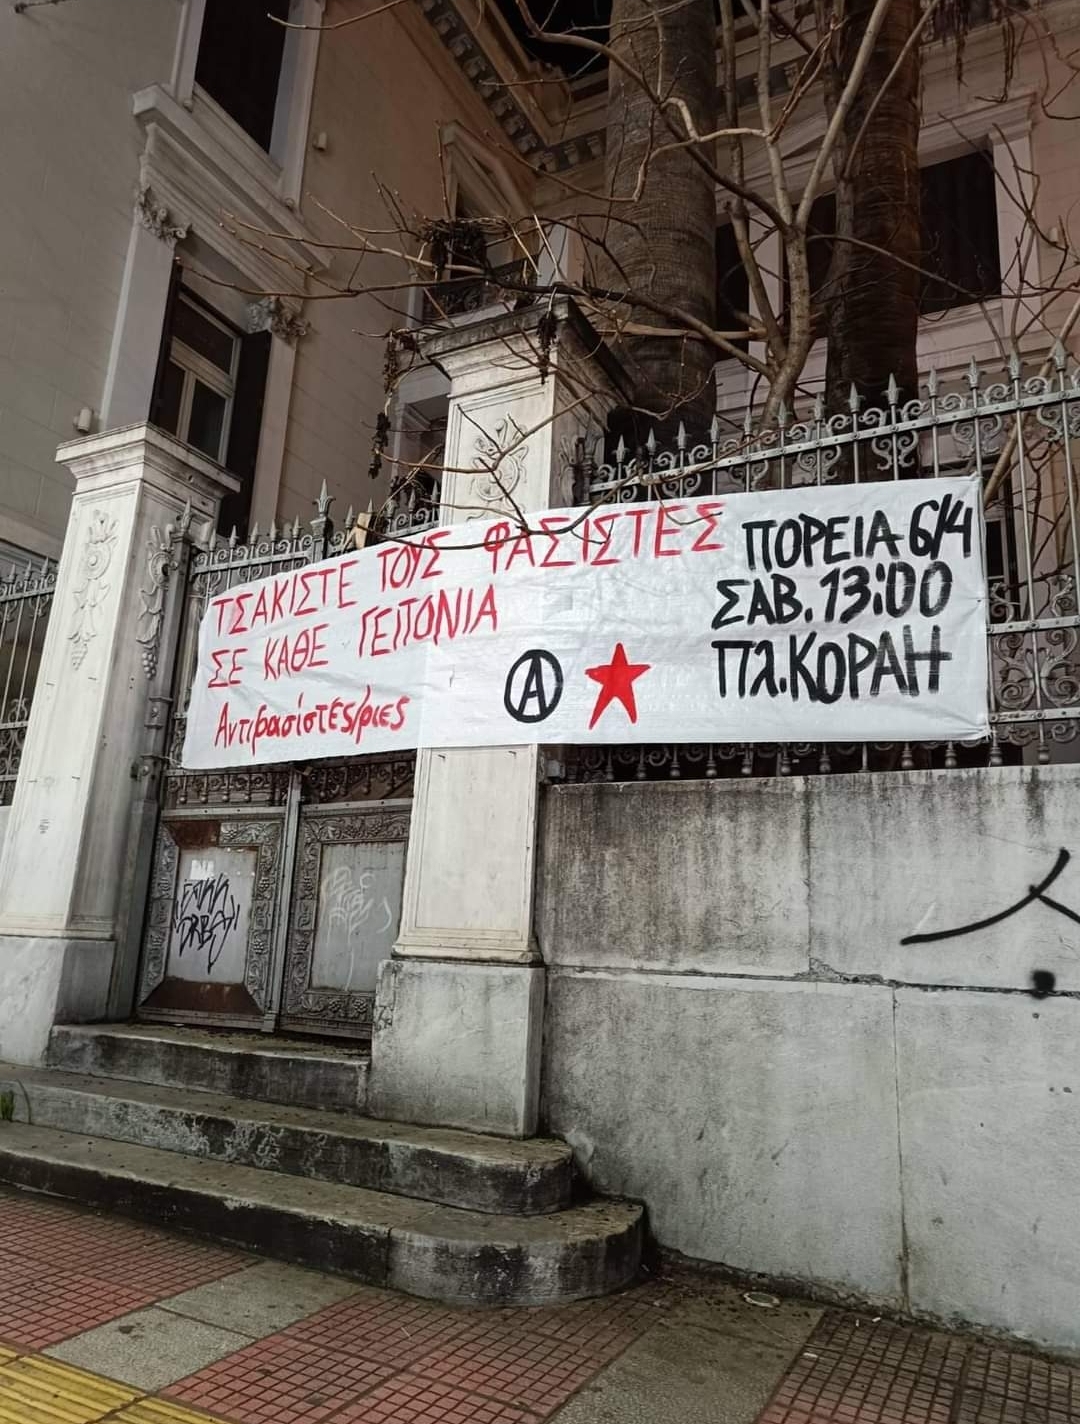 ΤΣΑΚΙΣΤΕ ΤΟΥΣ ΦΑΣΙΣΤΕΣ
ΣΕ ΚΑΘΕ ΓΕΙΤΟΝΙΑ
Αντιφασίστες/ριες
Α
ΠΟΡΕΙΑ 6/4
ΣΑΒ. 13:00
ΠΛ.ΚΟΡΑΗ